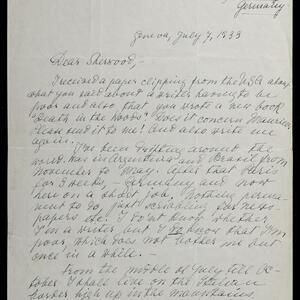 Germany
Geneva, July 7, 1933
Dear Sherwood,-
I received a paper clipping from the USA along
what you said about a writer having to be
poor and also that you wrote a new book
"Death in the Woods". Does it concern Maurice?
Please send it to me! And also write me
again.
I've been drifting around the
world. Was in Argentina and Brazil from
November to May. After that Paris
for 3 weeks, Germany and now
here on a short job. Nothing perma-
nent to do, just scribbling for news-
papers etc. I don't know whether
I'm a writer but I know that I'm
poor, which does not bother me but
once in a while.
From the middle of July till Oc-
tober I shall live on the Italian
border high up in the mountains